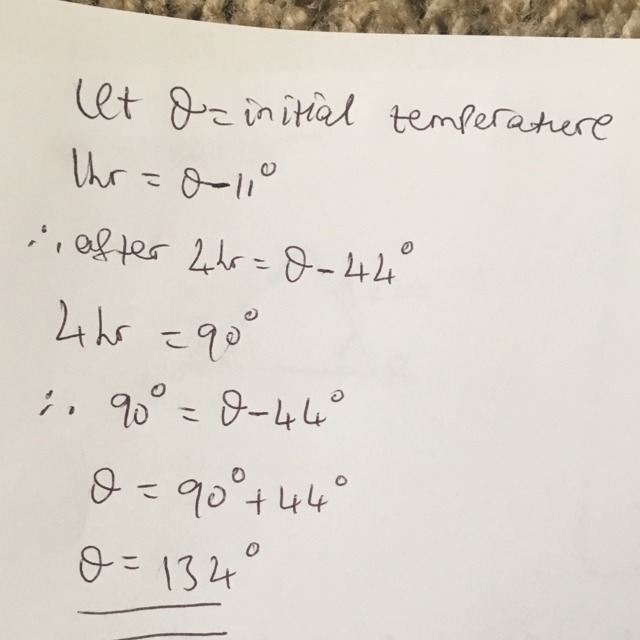 let θ = initial temperature
1hr = θ-11°
∴ after 4hr = θ-44°
4hr = 90°
∴ 90° = θ-44°
θ = 90°+44°
θ = 134°